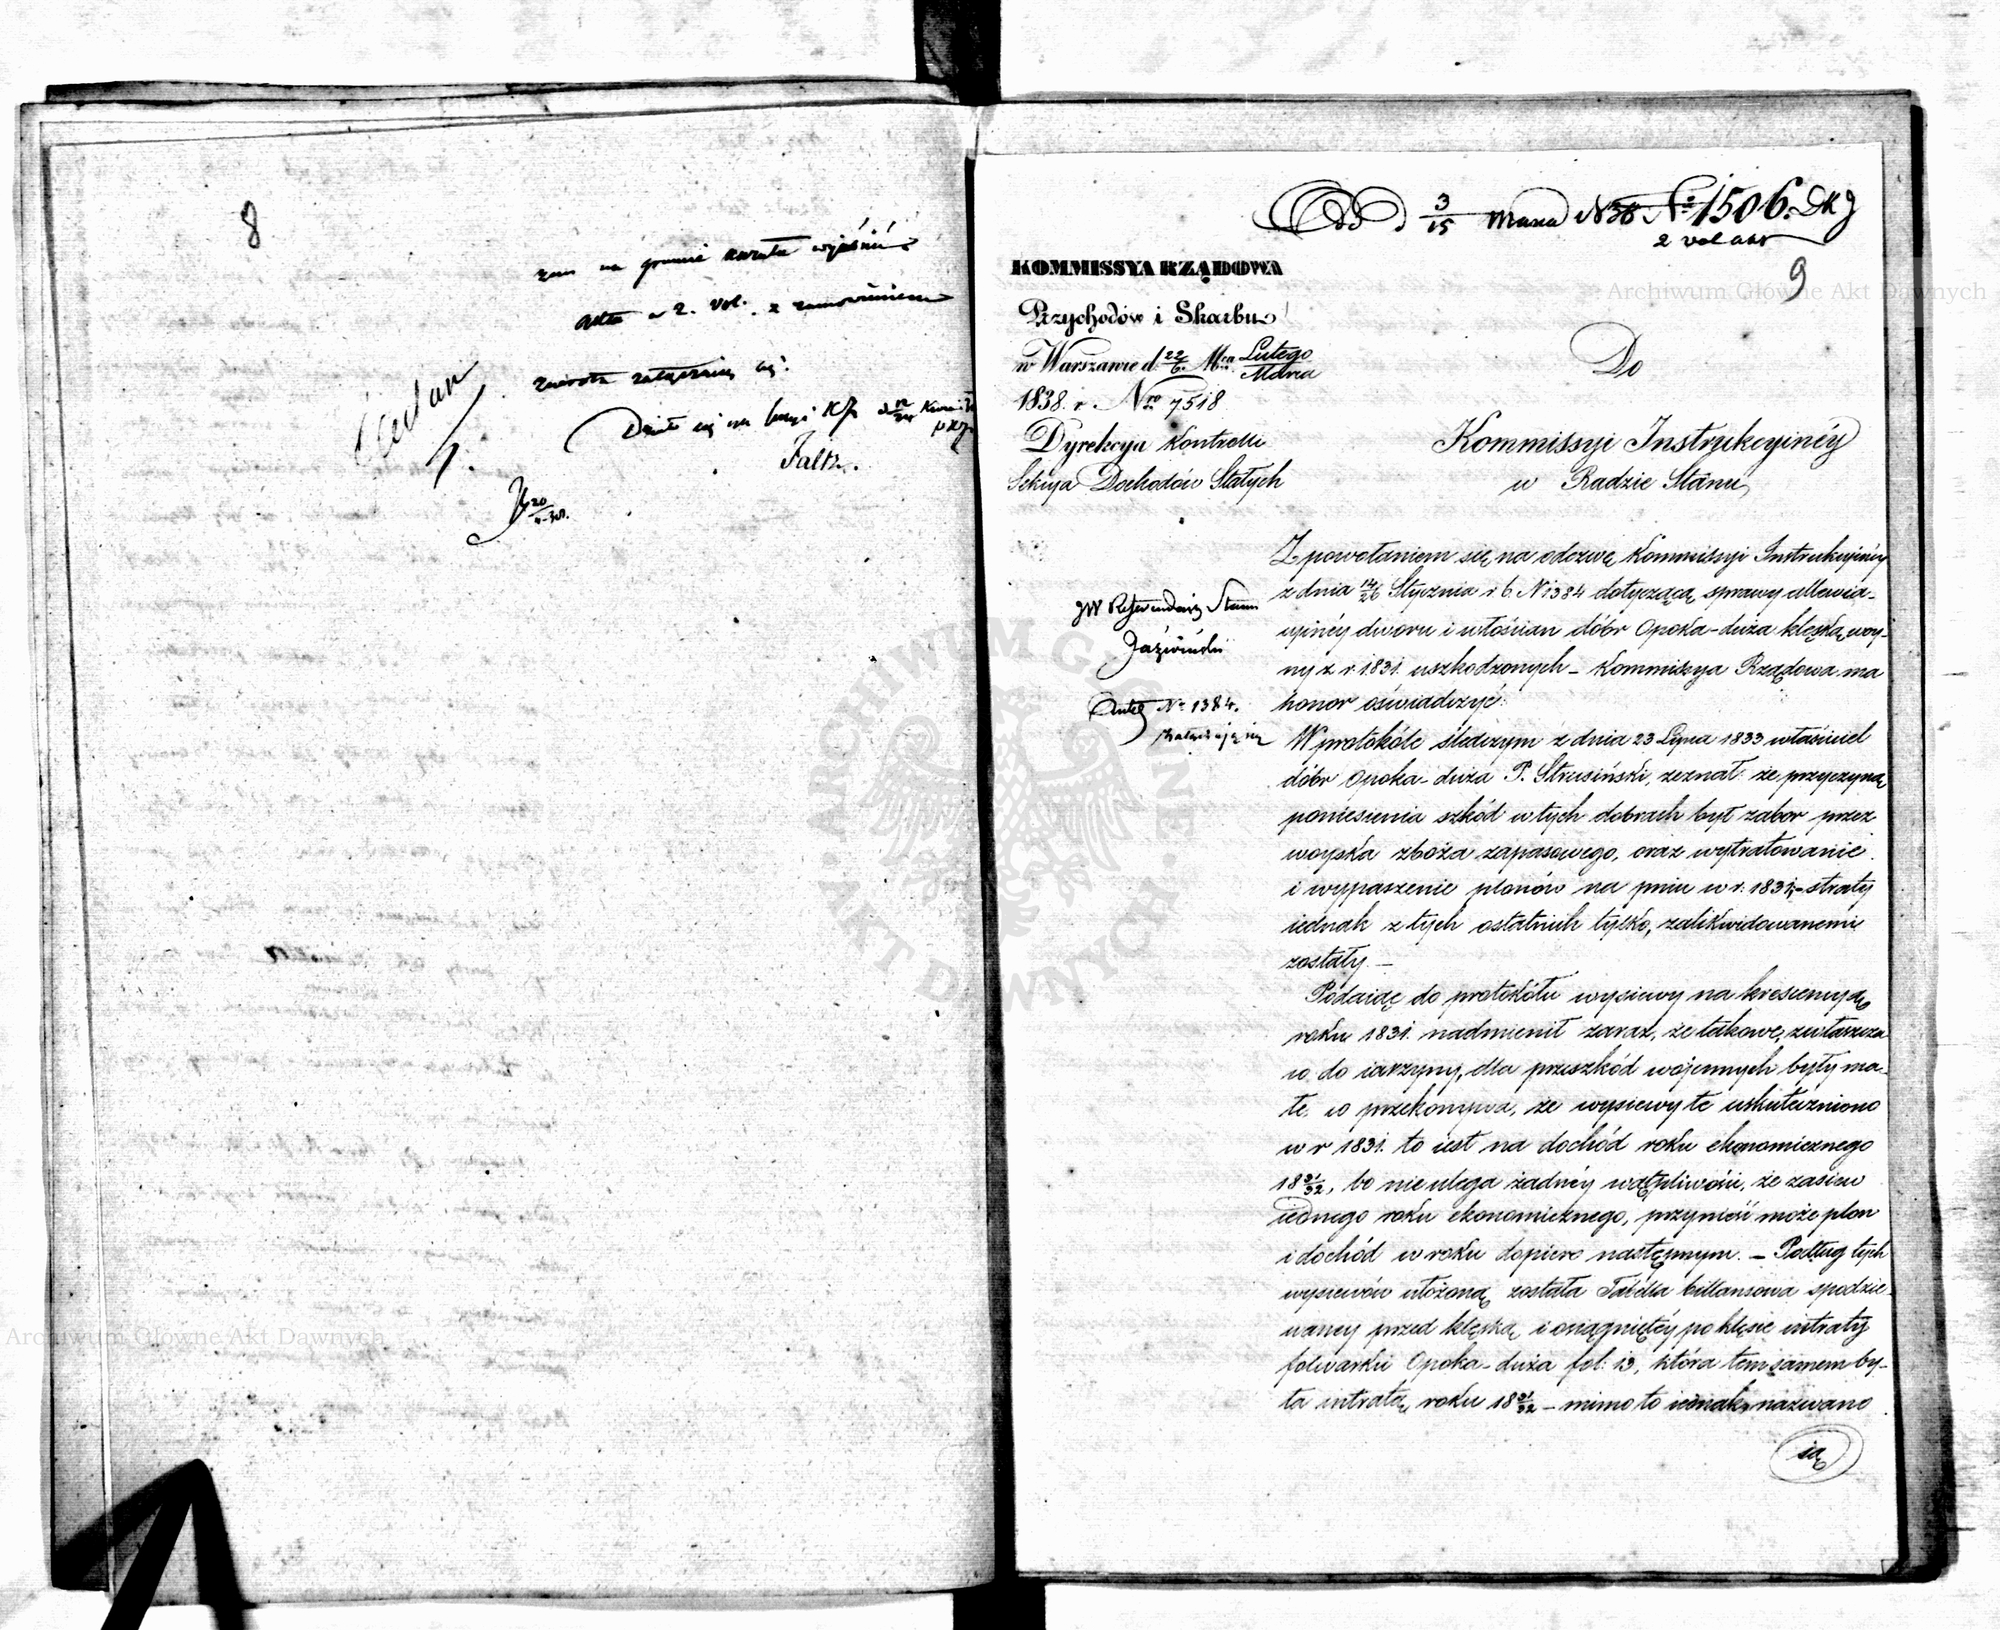 8
na gruncie
akta w 2. vol. z zamówieniem
zwrotu załączaią się.
Działo się na Sessyi
Faltz.
Odd d 3/15 Marca N 38 № 1506. DKJ
2 vol akt
9
KOMMISSYA RZĄDOWA
Przychodów i Skarbu
w Warszawie d. 22/6. Mca Lutego/Marca
1838. r. Nro 7518
Dyrekcya Kontrolli
Sekcya Dochodów Stałych
Do
Kommissyi Instrukcyinéy
w Radzie Stanu,
JW Referendarz Stanu
Jaźwiński
Antec N° 1384.
załączają się
Z powołaniem się na odezwę Kommissyi Instrukcyinéy
z dnia 14/26 Stycznia r b. N 1384 dotyczącą sprawy allewia-
cyinéy dworu i włościan dóbr Opoka-duża klęską woy-
ny z r 1831. uszkodzonych – Kommissya Rządowa ma
honor oświadczyć:
W protokóle śledczym z dnia 23 Lipca 1833 właściciel
dóbr Opoka-duża P. Strusiński, zeznał: że przyczyną
poniesienia szkód w tych dobrach był zabor przez
woyska zboża zapasowego, oraz wytratowanie
i wypaszenie plonów na pniu w r: 1831,– straty
iednak z tych ostatnich tylko, zalikwidowanemi
zostały. –
Podaiąc do protokółu wysiewy na krescencyą
roku 1831. nadmienił zaraz, że takowe, zwłaszcza
co do iarzyny, dla przeszkód wojennych były ma-
łe, co przekonywa, że wysiewy te uskuteczniono
w r 1831. to iest na dochód roku ekonomicznego
18 31/32, bo nie ulega żadnéy wątpliwości, że zasiew
iednego roku ekonomicznego, przynieść może plon
i dochód w roku dopiero następnym. – Podług tych
wysiewów ułożoną została Tabella billansowa spodzie-
wanéy przed klęską i osiągniętéy po klęsce intraty
folwarku Opoka-duża fol: 13, która tem samem by-
ła intratą roku 18 31/32 – mimo to iednak, nazwano
ią